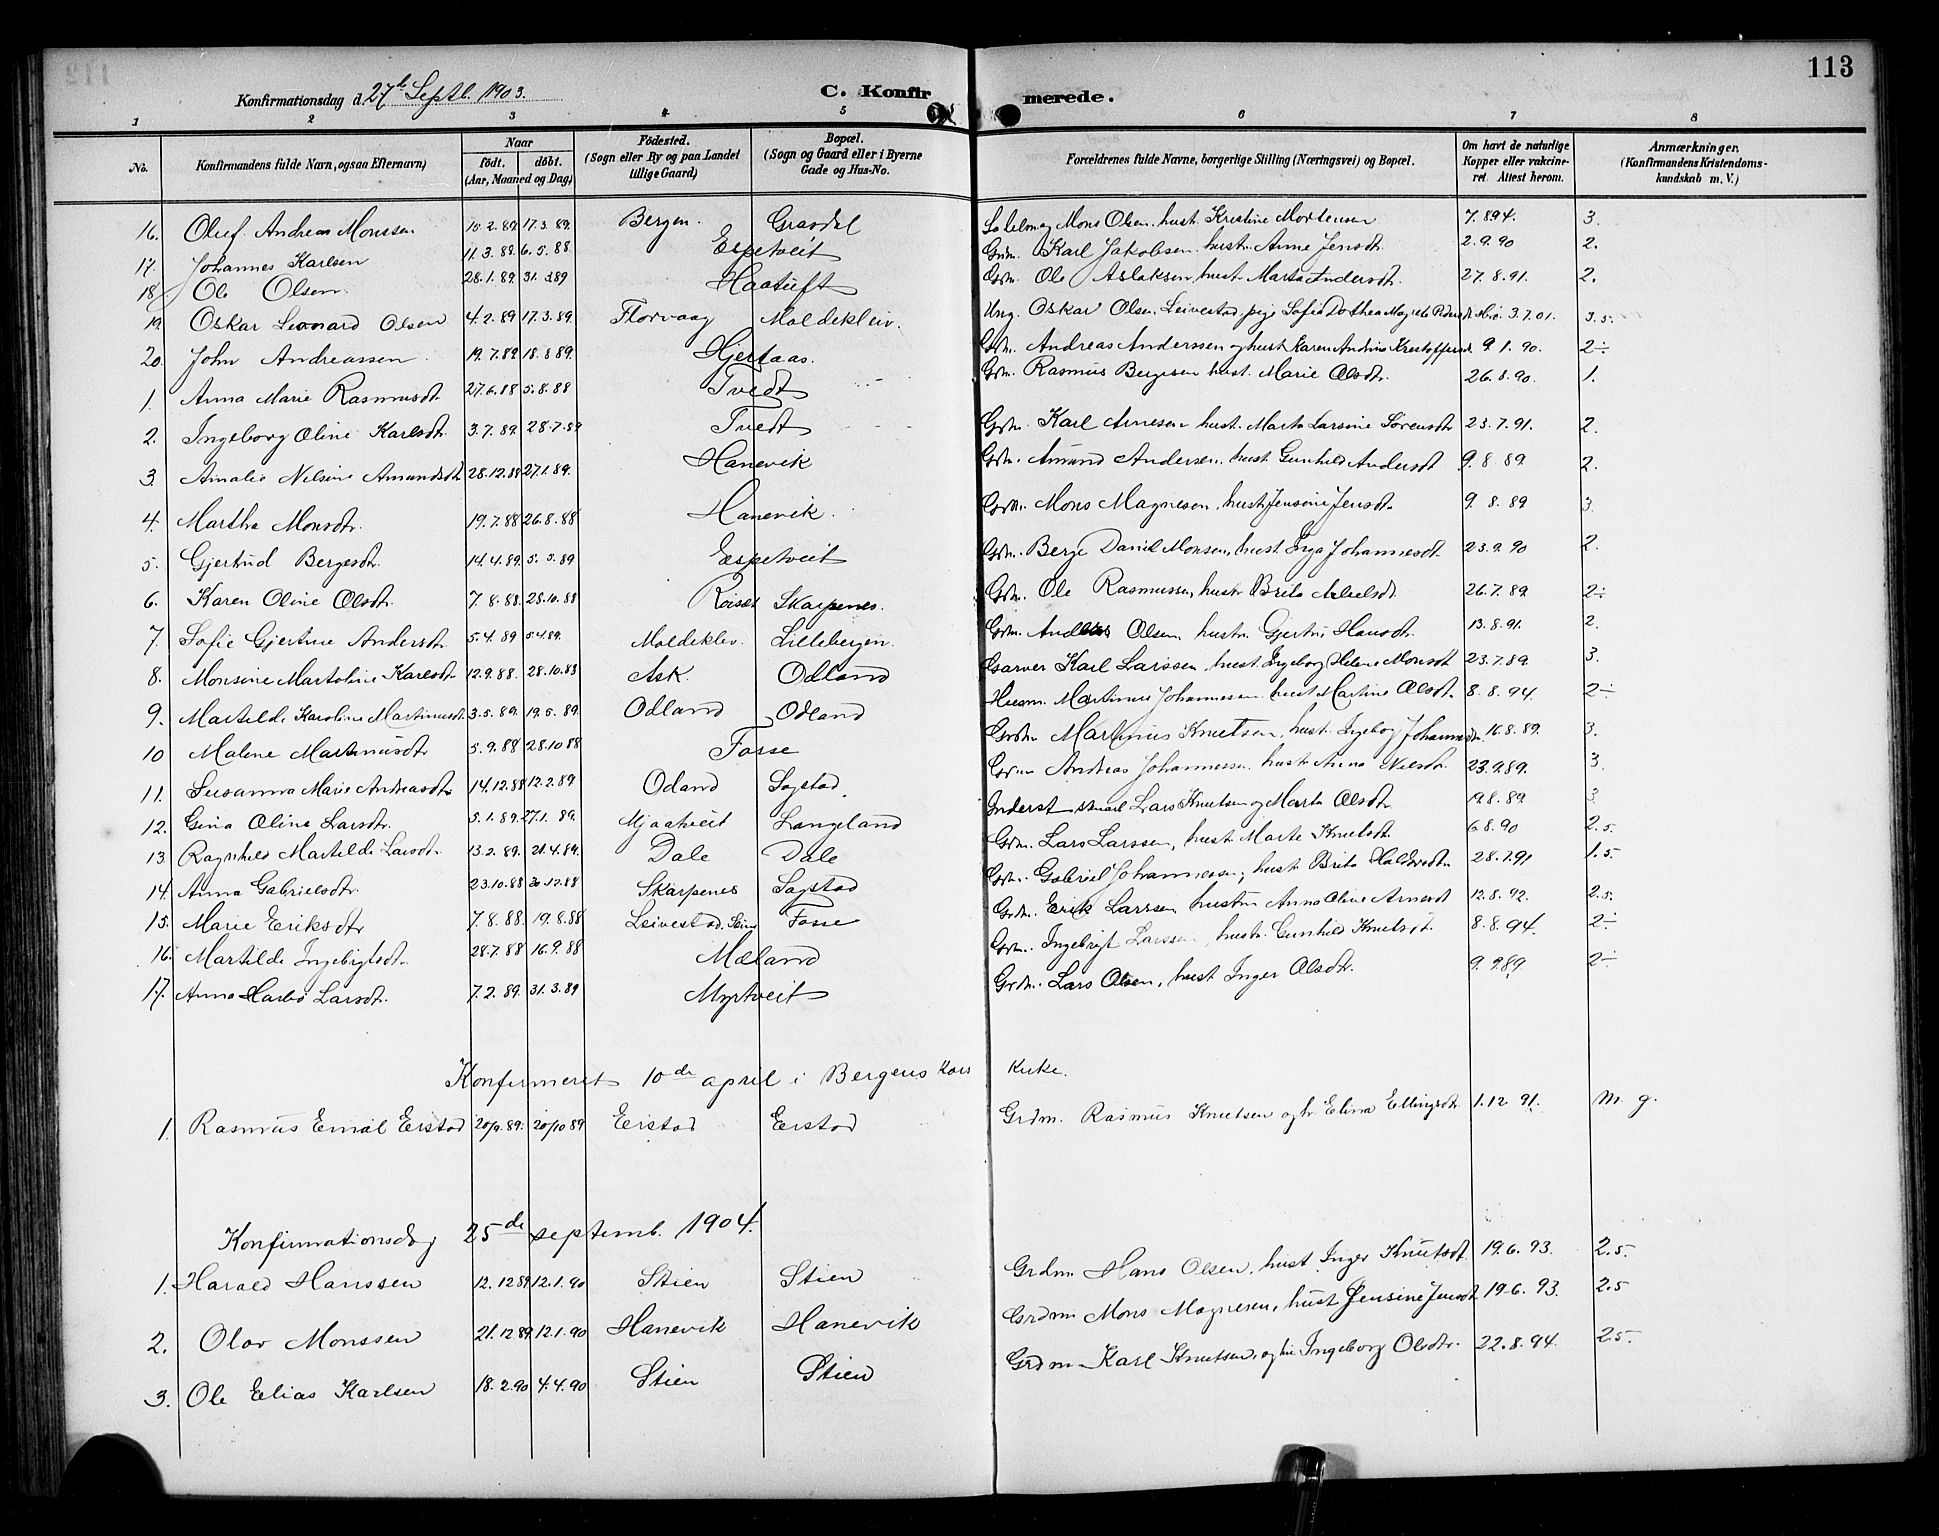 113
Konfirmationsdag d. 27de Septb. 1903.
C. Konfirmerede.
1 2 3 4 5 6 7 8
No. Konfirmandens fulde Navn, ogsaa Efternavn) Naar født. døbt. (Aar, Maaned og Dag) Fødested. (Sogn eller By og paa Landet tillige Gaard) Bopæl. (Sogn og Gaard eller i Byerne Gade og Hus-No. Forældrenes fulde Navne, borgerlige Stilling (Næringsvei) og Bopæl. Om havt de naturlige Kopper eller vakcineret. Attest herom. Anmærkninger. (Konfirmandens Kristendomskundskab m. V.)
16. Oluf Andreas Monssen 10.2.89 17.3.89. Bergen. Gravdal Mons Olsen, hust. Kristine Mortensen 7.8.94. 3.
17. Johannes Karlsen 11.3.88 6.5.88 Espetveit Grdm. Karl Jakobsen hustr. Anne Jensdtr. 2.9.90 2.
18 Ole Olsen. 28.1.89 31.3.89 Haatuft Grdm. Ole Aslaksen, hust. Marta Andersdtr. 27.8.91. 2.
19. Oskar Leonard Olsen 4.2.89 17.3.89. Florvaag Moldekleiv. Ung. Oskar Olsen Leivestad, pige Sofia Dothea 3.7.01. 3.5.
20. John Andreassen 19.7.89 18.8.89. Hjertaas. Grdm. Andreas Anderssen og hust Karen Andrine Krestoffersd. 9.1.90. 2÷
1. Anna Marie Rasmusdtr. 27.6.88 5.8.88 Tvedt Grdm. Rasmus Bergesen hust. Marie Olsdtr. 26.8.90. 1.
2. Ingeborg Oline Karlsdtr. 3.7.89. 28.7.89 Tvedt Grdm. Karl Arnesen hust. Marta Larsine Sørensdtr 23.7.91. 2.
3. Amalie Nilsine Amundsdtr 28.12.88 27.1.89. Hanevik Grdm. Amund Andersen, hust. Gunhild Andersdt 9.8.89. 2.
4. Martha Monsdtr. 19.7.88 26.8.88 Hanevik. Grdm. Mons Magnesen, hust Jensine Jensdtr. 9.8.89 3.
5. Gjertrud Bergesdtr. 14.4.89. 5.5.89 Espetveit Grdm. Berge Daniel Monsen, hust Inga Johannesdt. 23.9.90 2.
6. Karen Oline Olsdtr. 7.8.88. 28.10.88 Roiset Skarpenes. Grdm. Ole Rasmussen, hustr Brita 26.7.89 2÷
7. Sofie Gjertine Andersdtr. 5.4.89 5.4.89. Moldeklev. Lillebergen. Grdm. Olsen, hustr. Gjertru Hansdtr. 13.8.91. 2.
8. Monsine Martoline Karlsdtr. 12.9.88. 28.10.88 Ask. Odland Garver Karl Larssen, hust. Ingeborg Helene Monsdt 23.7.89. 3.
9. Martilde Karoline Martinusdt. 3.5.89. 19.5.89. Odland Odland Husm. Martinus Johannesen hust Martine Olsdt. 8.8.94. 2÷
10 Malene Martinusdtr 5.9.88 28.10.88 Fosse Grdm Martinus Knutsen, hust. Ingeborg Johannesdtr. 16.8.89. 3.
11. Susanna Marie Andreasdtr 14.12.88 12.2.89 Odland Sogstad. Grdm Andreas Johannessen hust Anna Nilsdtr. 23.9.89. 3.
12. Gina Oline Larsdtr. 5.1.89. 27.1.89. Mjaatveit Langeland Inderst Lars Knutsen og Marta Olsdtr 19.8.89. 3
13. Ragnhild Martilde Larsdtr. 13.2.89. 21.4.89. Dale Dale Grdm. Lars Larssen, hust. Marte Knutsdtr. 6.8.90 2.5.
14. Anna Gabrielsdtr. 23.10.88 30.12.88 Skarpenes Sogstad Grdm. Gabriel Johannessen, hust Brita Haldorsdtr. 28.7.91 1.5.
15. Marie Eriksdtr 7.8.88. 19.8.88 Leivestad Fosse Grdm. Erik Larssen hustru Anna Oline Arnesdt 12.8.92. 2.5.
16. Martilde Ingebrigtsdtr. 28.7.88 16.9.88 Mæland Grdm. Ingebrigt Larssen, hustr. Gunhild Knutsdt. 8.8.94. 2÷
17. Anna Larsdtr. 7.2.89. 31.3.89 Myrtveit Grdm. Lars Olsen, hust Inger Olsdtr. 9.9.89 2÷
Konfirmeret 10de april i Bergens Kors Kirke.
1. Rasmus Emil Eirstad 20/9.89. 20/10 89 Eirstad Eirstad Grdm. Rasmus Knutsen og h. Elina Ellingsdtr. 1.12.91. m. g.
Konfirmationsdag 25de septemb. 1904.
1. Harald Hanssen 12.12.89 12.1.90 Stien Stien Grdm Hans Olsen, hust. Inger Knutsdt. 19.6.93. 2.5.
2. Olav Monssen 21.12.89 12.1.90 Hanevik Hanevik Grdm Mons Magnesen, hust Jensine Jensdt. 19.6.93. 2.5
3. Ole Elias Karlsen 18.2.90 4.4.90 Stien Stien Grdm Karl Knutsen, og hu. Ingeborg Olsdtr. 22.8.94. 2.5.